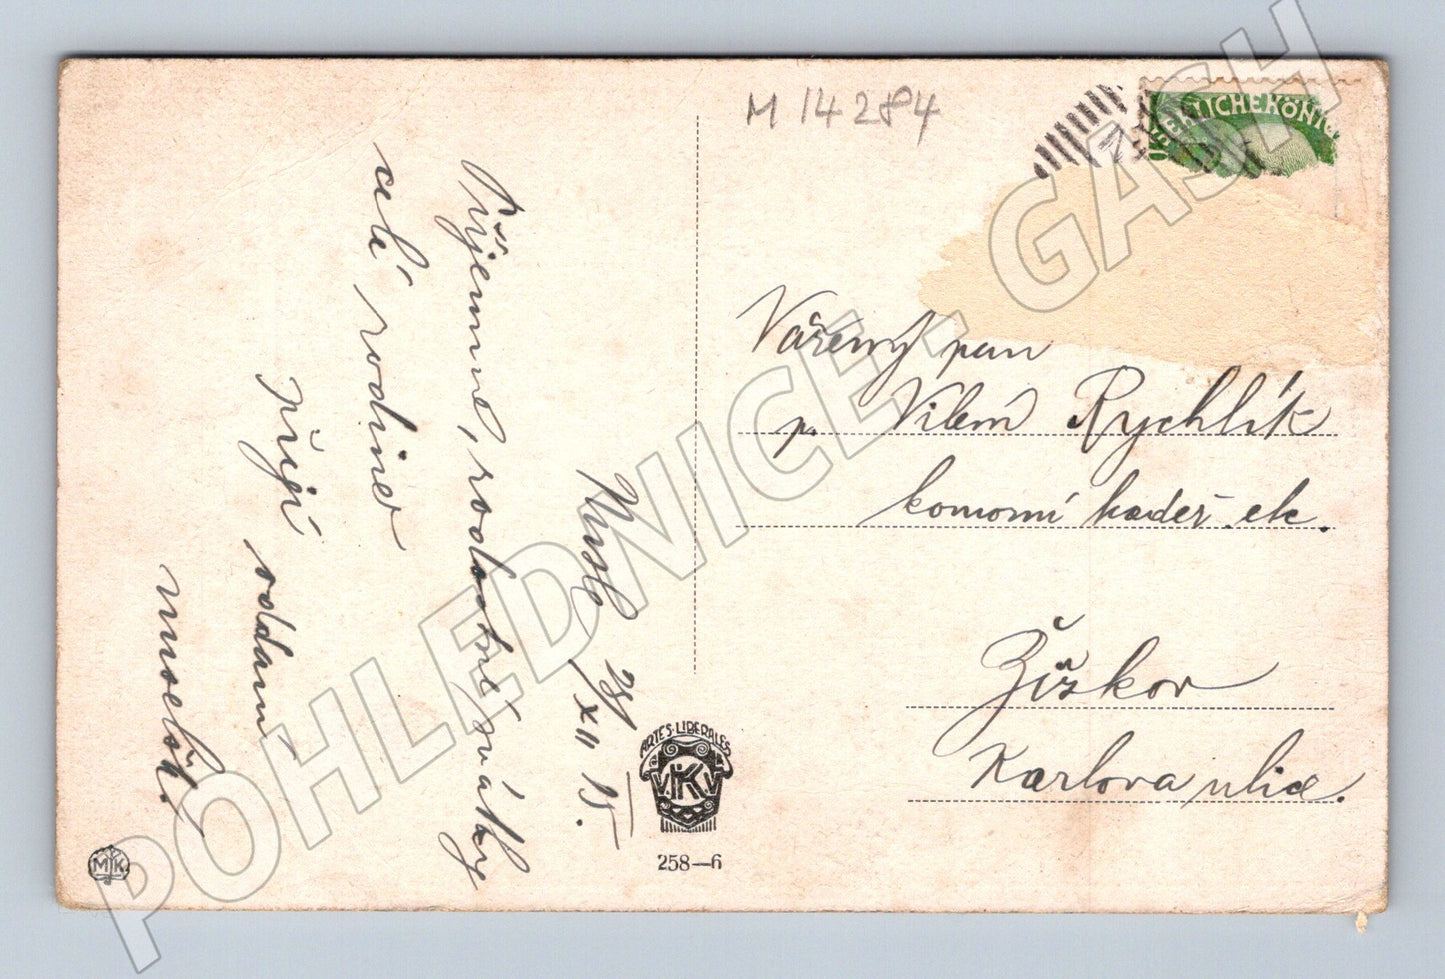 M 14284
KSERLICHEKÖNIG
Příjemné, radostné svátky
celé rodině
přejí oddaní
Nusle 23/XII 15.
Vážený pan
p. Vilém Rychlík
komorní kadeř. etc.
Žižkov
Karlova ulice.
ARTES·LIBERALES
V.K.K.V
258—6
M.K.
POHLEDNICE - GASH